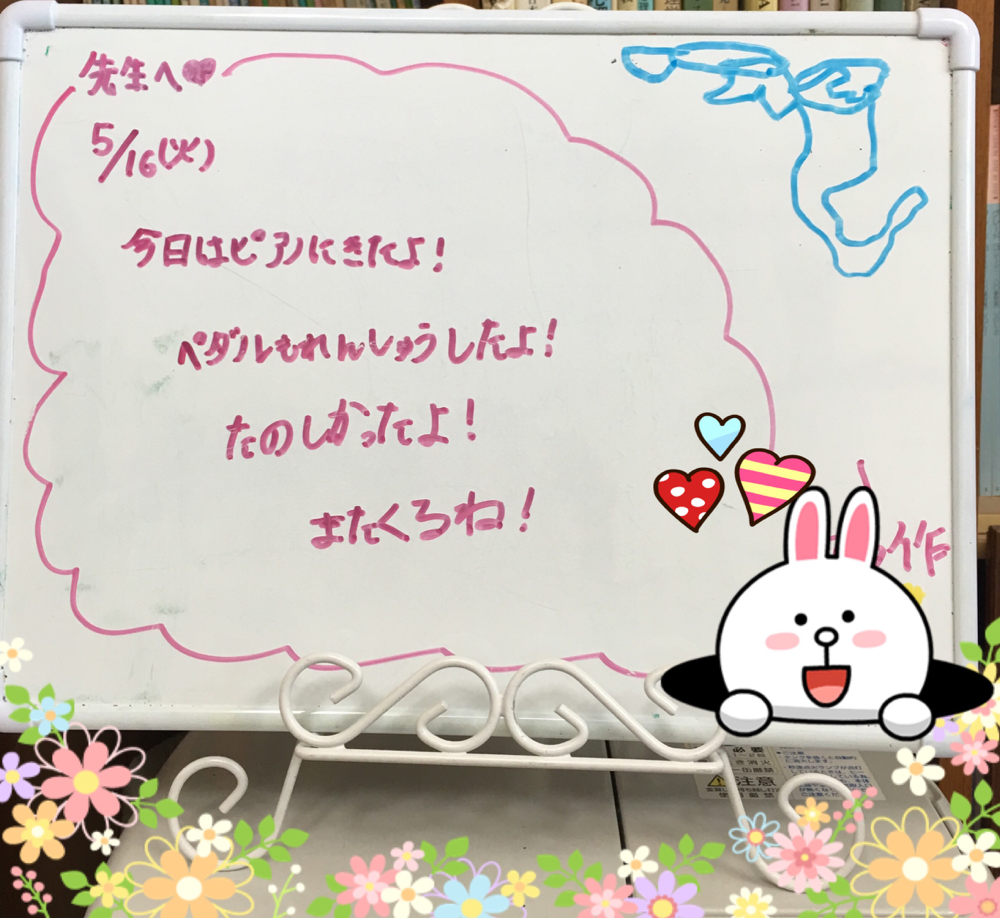 先生へ♥
5/16(火)
今日はピアノにきたよ!
ペダルもれんしゅうしたよ!
たのしかったよ!
またくるね!
作
必要
注意